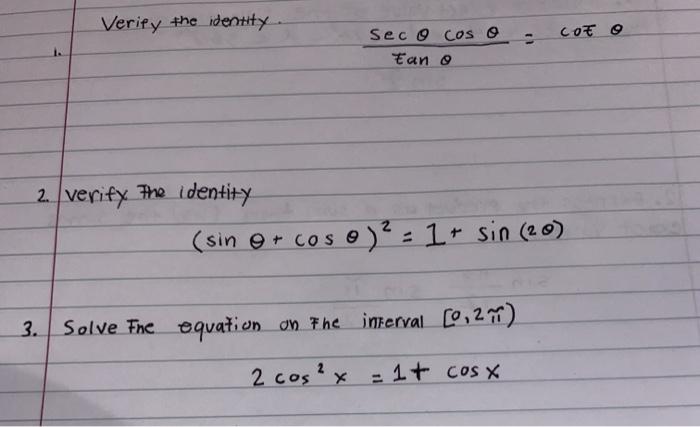 Verify the identity.
1. sec θ cos θ / tan θ = cot θ
2. verify The identity
(sin θ + cos θ)² = 1 + sin (2θ)
3. Solve The equation on The interval [0, 2π)
2 cos² x = 1 + cos x